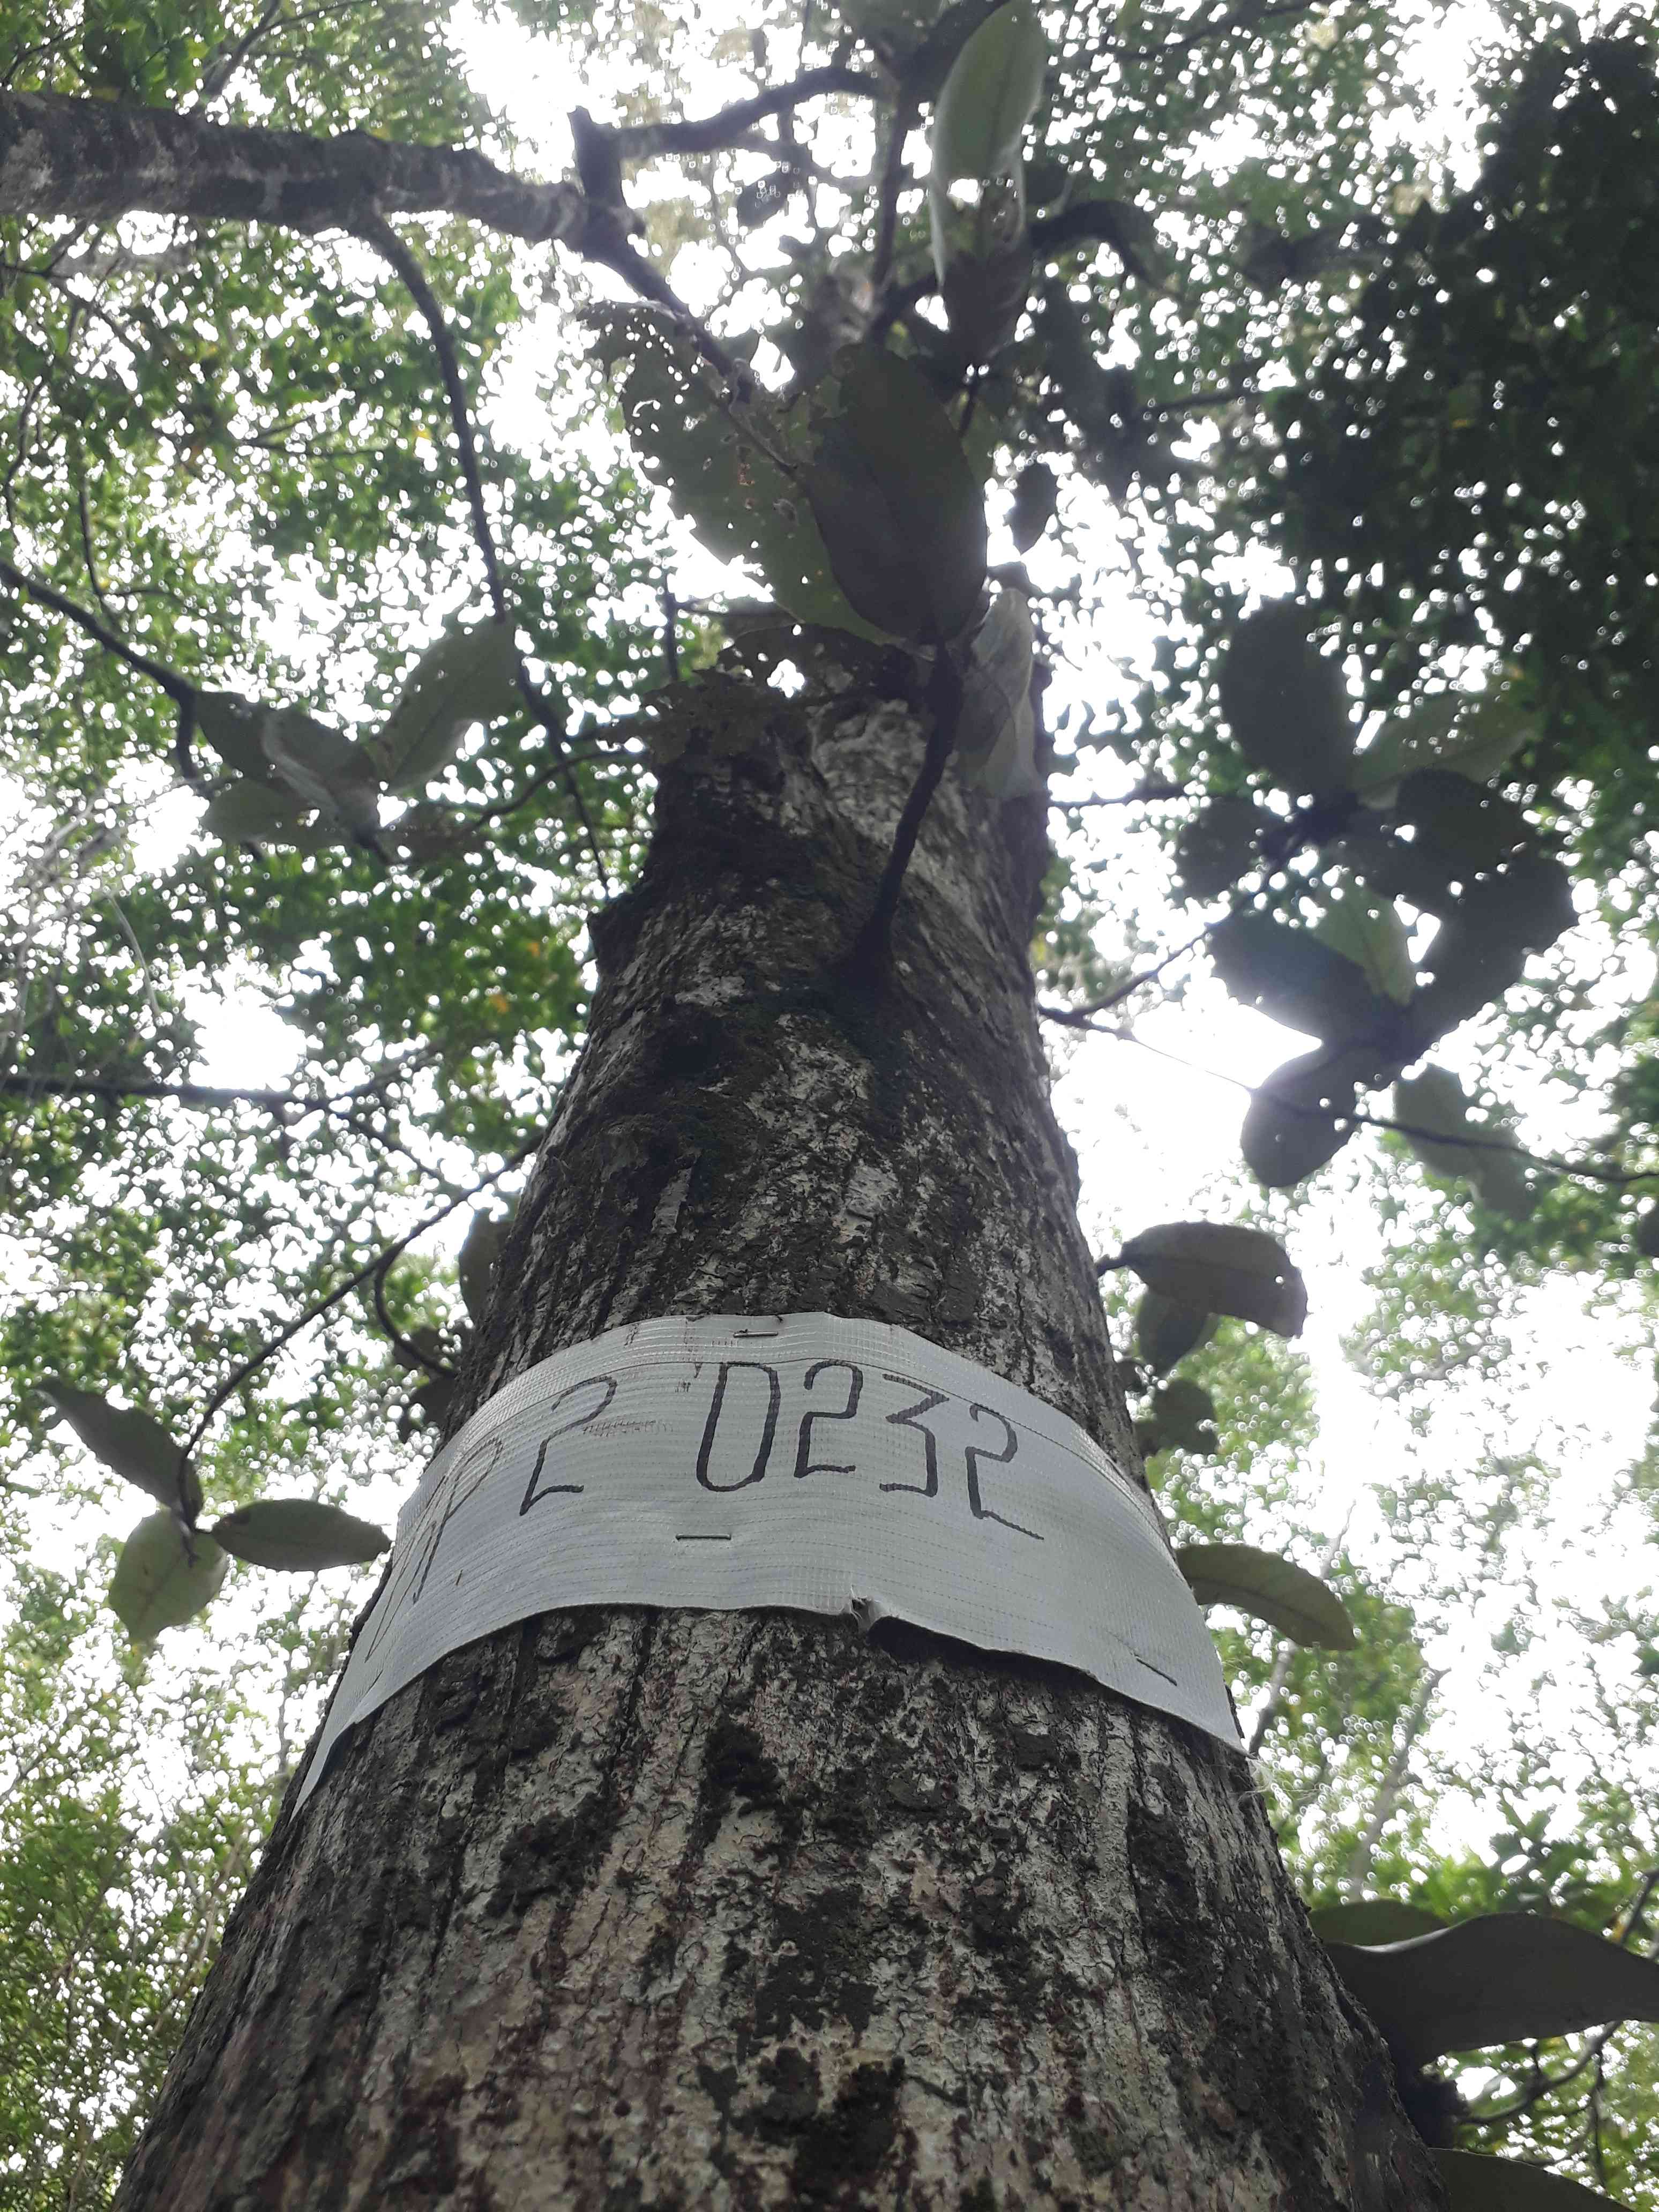 P2 0232